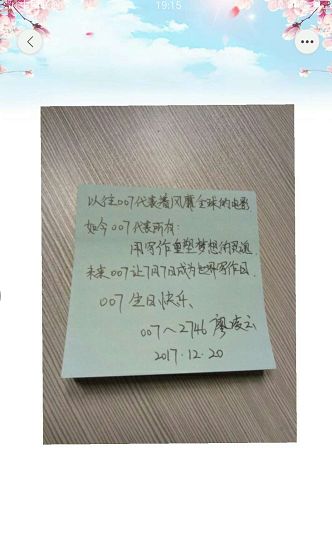 19:15
以往007代表着风靡全球的电影
如今007代表所有:
用写作重塑梦想的
未来007让7月7日成为世界写作日.
007 生日快乐、
007~2746 廖凌云
2017.12.20